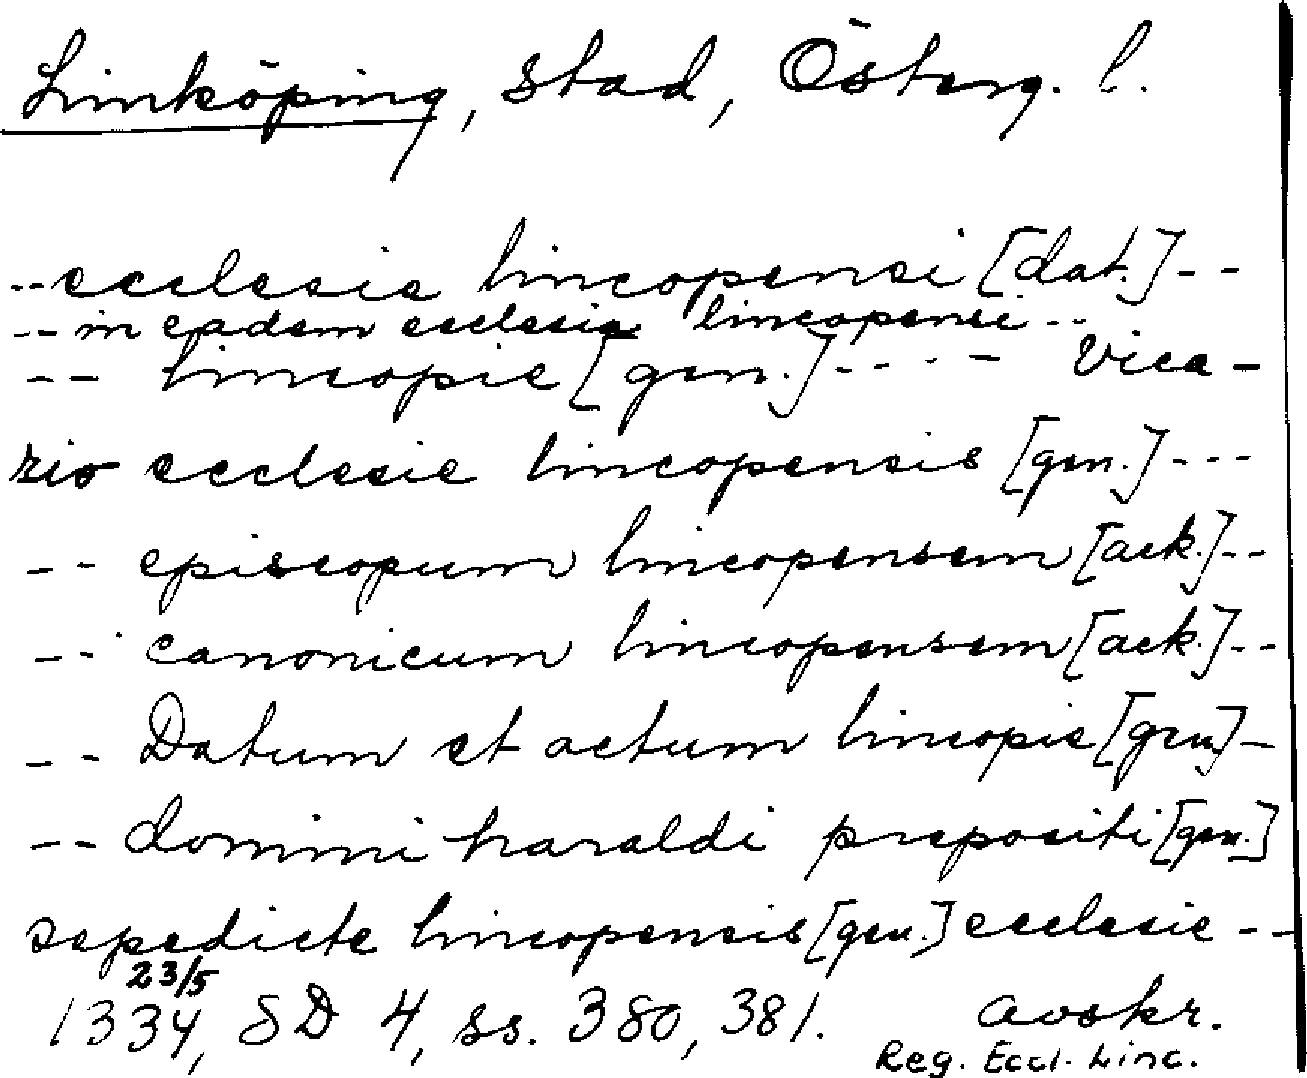 Linköping, stad, Österg. l.
-- ecclesie lincopensi [dat.] --
-- in eadem ecclesia lincopensi --
-- lincopie [gen.] ---- Vica-
rio ecclesie lincopensis [gen.] ---
-- episcopum lincopensem [ack.] --
-- canonicum lincopensem [ack.] --
-- Datum et actum lincopie [gen.] -
-- domini haraldi prepositi [gen.]
sepedicte lincopensis [gen.] ecclesie --
1334 23/5, SD 4, ss. 380, 381. avskr.
Reg. Eccl. Linc.